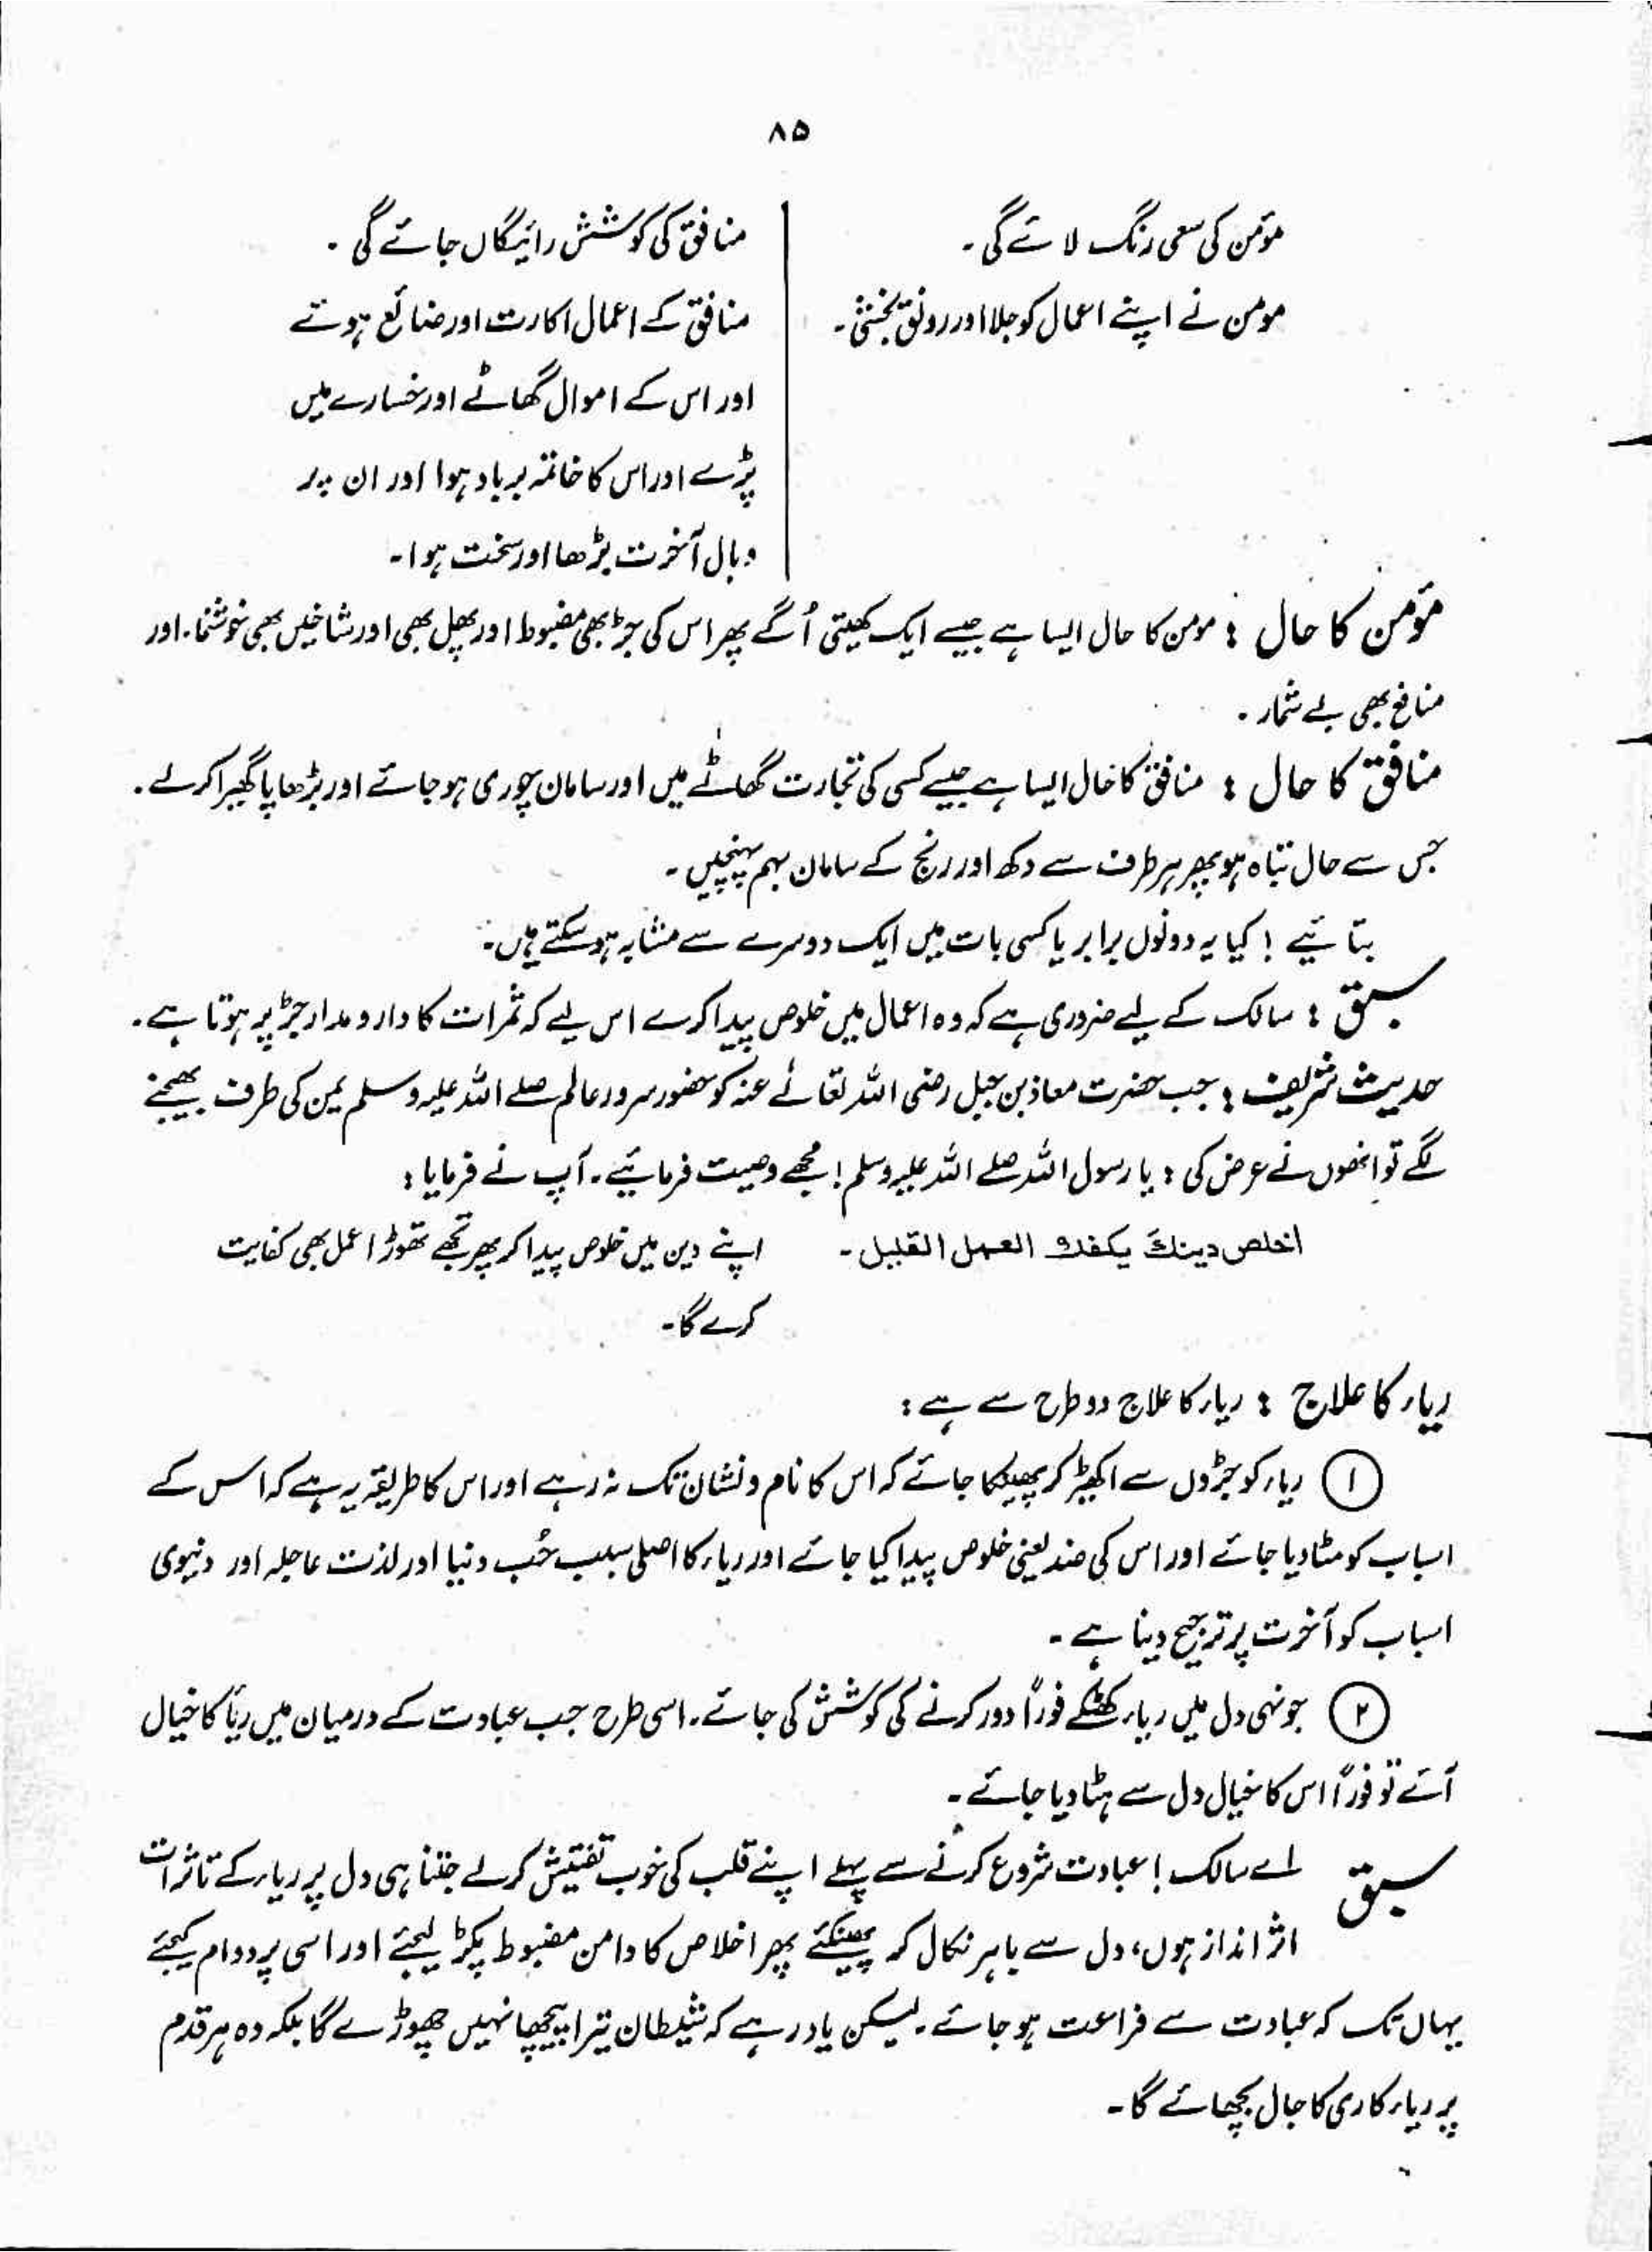 ۸۵
مؤمن کی سعی رنگ لائے گی۔
مومن نے اپنے اعمال کو جلا اور رونق بخشی۔
منافق کی کوشش رائیگاں جائے گی۔
منافق کے اعمال اکارت اور ضائع ہوئے
اور اس کے اموال گھاٹے اور خسارے میں
پڑے اور اس کا خاتمہ برباد ہوا اور ان پر
وبال آخرت بڑھا اور سخت ہوا۔
مؤمن کا حال : مومن کا حال ایسا ہے جیسے ایک کھیتی اُگے پھر اس کی جڑ بھی مضبوط اور پھل بھی اور شاخیں بھی خوشنما۔ اور
منافع بھی بے شمار۔
منافق کا حال : منافق کا حال ایسا ہے جیسے کسی کی تجارت گھاٹے میں اور سامان چوری ہو جائے اور بڑھاپا گھیرا کرلے۔
جس سے حال تباہ ہو پھر ہر طرف سے دکھ اور رنج کے سامان بہم پہنچیں۔
بتائیے ! کیا یہ دونوں برابر یا کسی بات میں ایک دوسرے سے مشابہ ہو سکتے ہیں۔
سبق : سالک کے لیے ضروری ہے کہ وہ اعمال میں خلوص پیدا کرے اس لیے کہ ثمرات کا دار و مدار جڑ پر ہوتا ہے۔
حدیث شریف : جب حضرت معاذ بن جبل رضی اللہ تعالےٰ عنہ کو حضور سرور عالم صلے اللہ علیہ وسلم یمن کی طرف بھیجنے
لگے تو انھوں نے عرض کی : یا رسول اللہ صلے اللہ علیہ وسلم ! مجھے وصیت فرمائیے۔ آپ نے فرمایا :
اخلص دینک یکفک العمل القلیل۔ اپنے دین میں خلوص پیدا کر پھر تجھے تھوڑا عمل بھی کفایت
کرے گا۔
ریاء کا علاج : ریاء کا علاج دو طرح سے ہے :
۱ ریاء کو جڑوں سے اکھیڑ کر پھینکا جائے کہ اس کا نام و نشان تک نہ رہے اور اس کا طریقہ یہ ہے کہ اس کے
اسباب کو مٹا دیا جائے اور اس کی ضد یعنی خلوص پیدا کیا جائے اور ریاء کا اصلی سبب حُب دنیا اور لذت عاجلہ اور دنیوی
اسباب کو آخرت پر ترجیح دینا ہے۔
۲ جونہی دل میں ریاء کھٹکے فوراً دور کرنے کی کوشش کی جائے۔ اسی طرح جب عبادت کے درمیان میں ریأ کا خیال
آئے تو فوراً اس کا خیال دل سے ہٹا دیا جائے۔
سبق اے سالک ! عبادت شروع کرنے سے پہلے اپنے قلب کی خوب تفتیش کرلے جتنا ہی دل پر ریاء کے تاثرات
اثر انداز ہوں، دل سے باہر نکال کر پھینکئے پھر اخلاص کا دامن مضبوط پکڑ لیجئے اور اسی پر دوام کیجئے
یہاں تک کہ عبادت سے فراعت ہو جائے۔ لیکن یاد رہے کہ شیطان تیرا پیچھا نہیں چھوڑے گا بلکہ وہ ہر قدم
پر ریاء کاری کا جال بچھائے گا۔